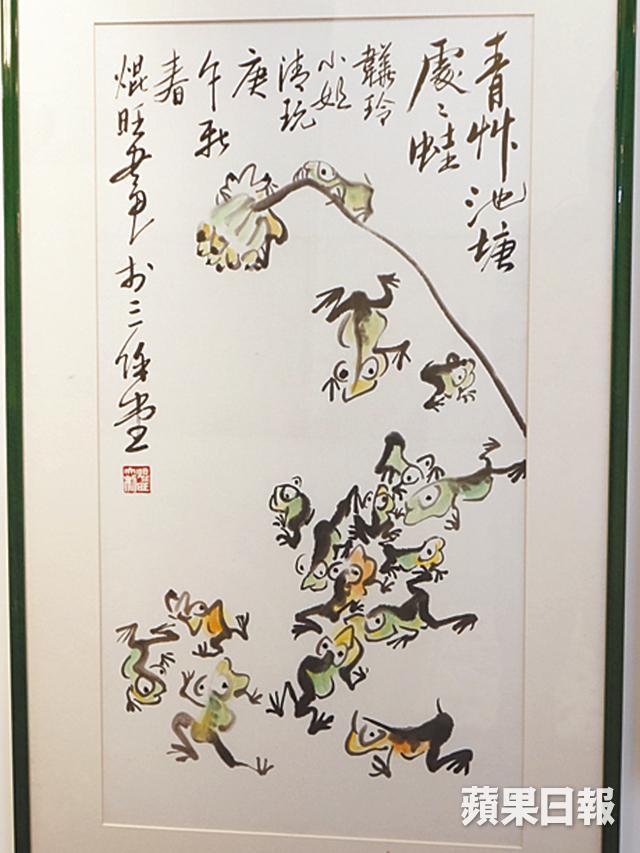 青艸池塘
處〻蛙
韡玲
小姐
清玩
庚
午秋
春
焜旺
於三餘堂
蘋果日報